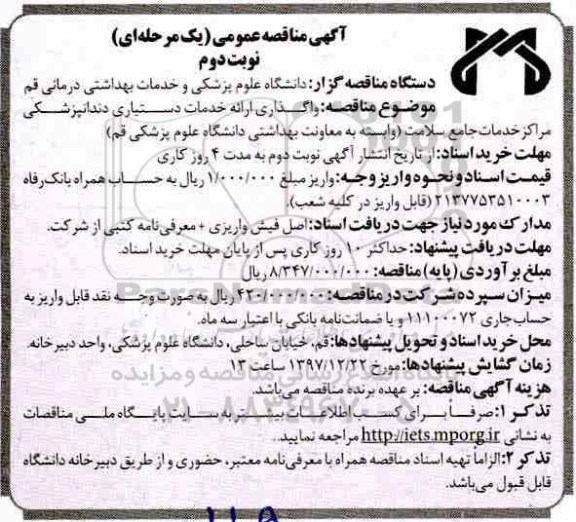 آگهی مناقصه عمومی (یک مرحله‌ای)
نوبت دوم
دستگاه مناقصه گزار: دانشگاه علوم پزشکی و خدمات بهداشتی درمانی قم
موضوع مناقصه: واگذاری ارائه خدمات دستیاری دندانپزشکی
مراکز خدمات جامع سلامت (وابسته به معاونت بهداشتی دانشگاه علوم پزشکی قم)
مهلت خرید اسناد: از تاریخ انتشار آگهی نوبت دوم به مدت ۴ روز کاری
قیمت اسناد و نحوه واریز وجه: واریز مبلغ ۱/۰۰۰/۰۰۰ ریال به حساب همراه بانک رفاه
۲۱۳۷۷۵۳۵۱۰۰۰۳ (قابل واریز در کلیه شعب).
مدارک مورد نیاز جهت دریافت اسناد: اصل فیش واریزی + معرفی‌نامه کتبی از شرکت.
مهلت دریافت پیشنهاد: حداکثر ۱۰ روز کاری پس از پایان مهلت خرید اسناد.
مبلغ برآوردی (پایه) مناقصه: ۸/۳۴۷/۰۰۰/۰۰۰ ریال
میزان سپرده شرکت در مناقصه: ۴۲۰/۰۰۰/۰۰۰ ریال به صورت وجه نقد قابل واریز به
حساب جاری ۱۱۱۰۰۰۷۲ و یا ضمانت‌نامه بانکی با اعتبار سه ماه.
محل خرید اسناد و تحویل پیشنهادها: قم، خیابان ساحلی، دانشگاه علوم پزشکی، واحد دبیرخانه.
زمان گشایش پیشنهادها: مورخ ۱۳۹۷/۱۲/۲۲ ساعت ۱۳
هزینه آگهی مناقصه: بر عهده برنده مناقصه می‌باشد.
تذکر ۱: صرفاً برای کسب اطلاعات بیشتر به سایت پایگاه ملی مناقصات
به نشانی http://iets.mporg.ir مراجعه نمایید..
تذکر ۲: الزاماً تهیه اسناد مناقصه همراه با معرفی‌نامه معتبر، حضوری و از طریق دبیرخانه دانشگاه
قابل قبول می‌باشد.